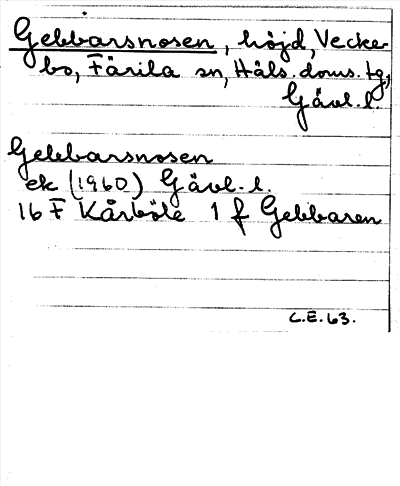 Gebbarsnosen, höjd, Vecker-
bo, Färila sn, Häls. doms. tg,
Gävl. l.
Gebbarsnosen
ek (1960) Gävl. l.
16 F Kårböle 1 f Gebbaren
C.E. 63.